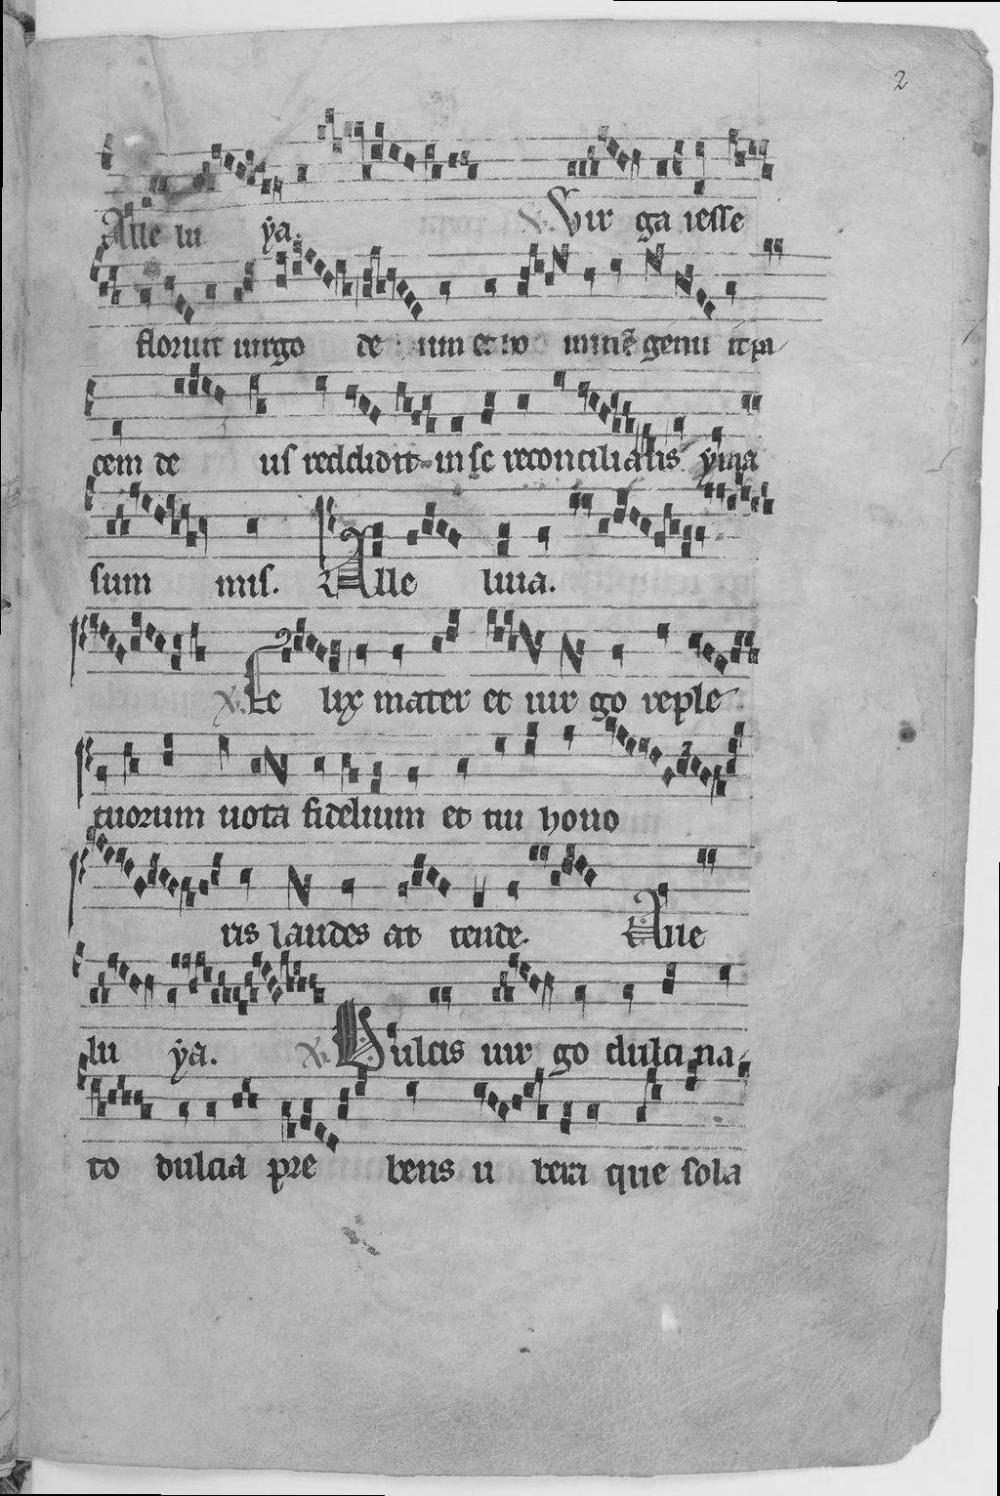 2
Alle lu ya. V. Vir ga iesse
floruit uirgo de um et ho minẽ genu it pa
cem de us reddidit in se reconcilians yma
sum mis. Alle luia.
V. Fe lix mater et uir go reple
tuorum uota fidelium et tui hono
ris laudes at tende. Alle
lu ya. V. Dulcis uir go dulci na
to dulcia pre bens u bera que sola